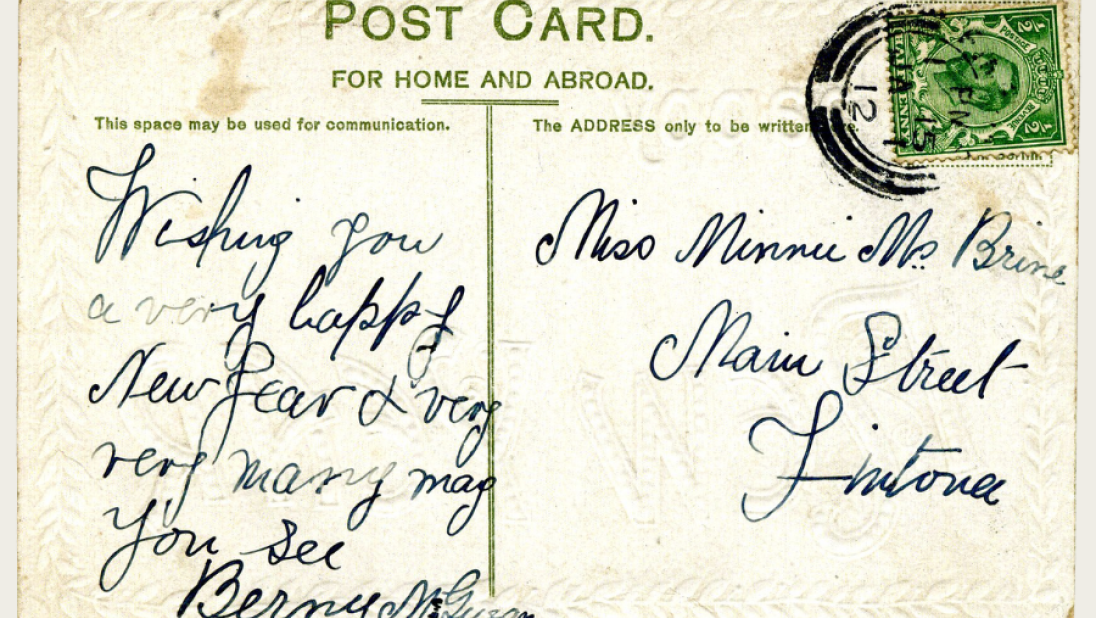 POST CARD.
FOR HOME AND ABROAD.
This space may be used for communication.
The ADDRESS only to be written
1 PM
JA 1
12
POSTAGE
½ ½
Wishing you
a very happy
New Year & very
very many may
you see
Bernie
Miss Minnie Mc Brine
Main Street
Fintona